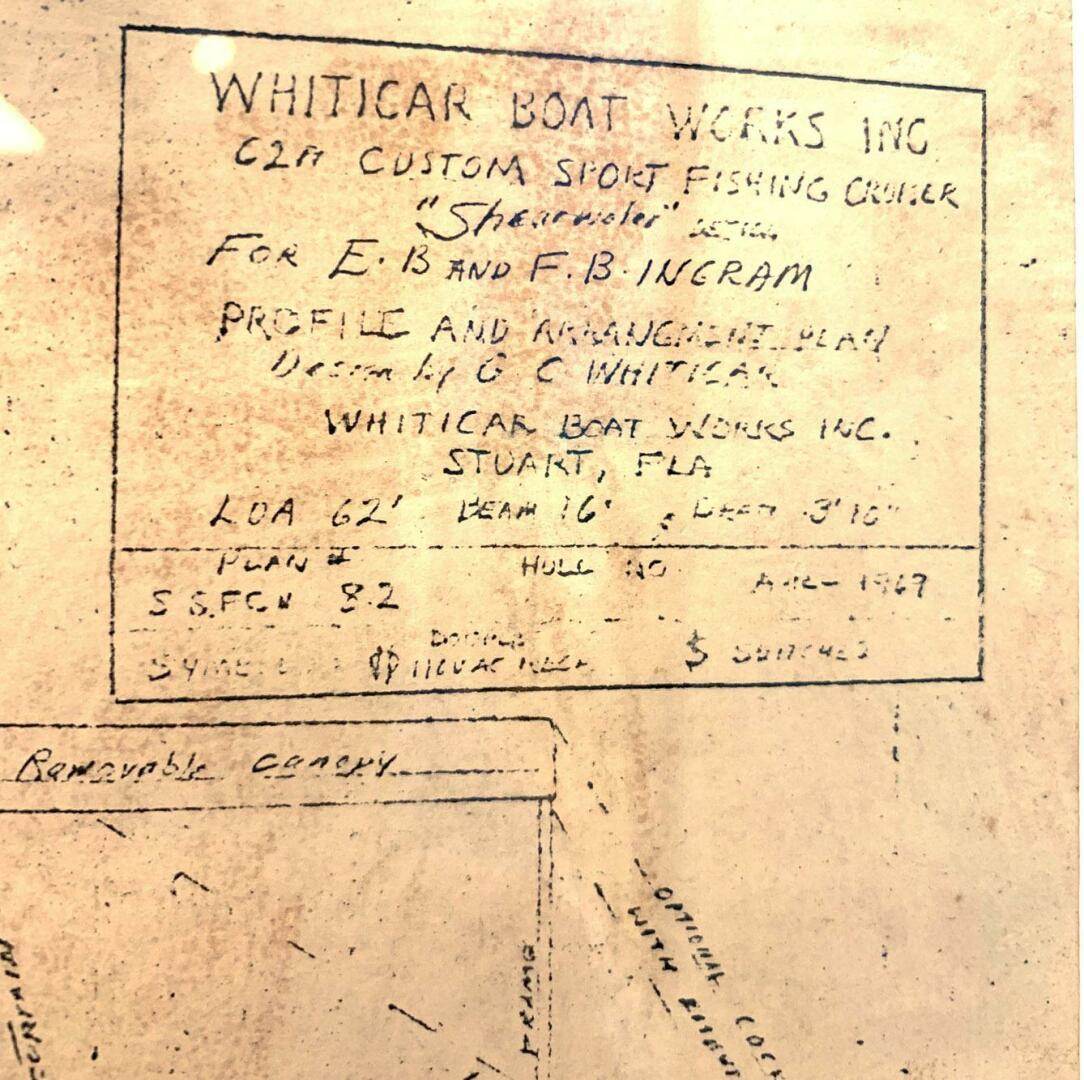 WHITICAR BOAT WORKS INC
62FT CUSTOM SPORT FISHING CRUISER
"Shearwater" DESIGN
FOR E.B AND F.B. INGRAM
PROFILE AND ARRANGMENT PLAN
Design by G C WHITICAR
WHITICAR BOAT WORKS INC.
STUART, FLA
LOA 62' BEAM 16' DRAFT 3'10"
PLAN # HULL NO
S S.FCN 82 1969
DOUBLE
110V AC $ SWITCHES
Removable canopy
OPTIONAL
WITH
FRAME